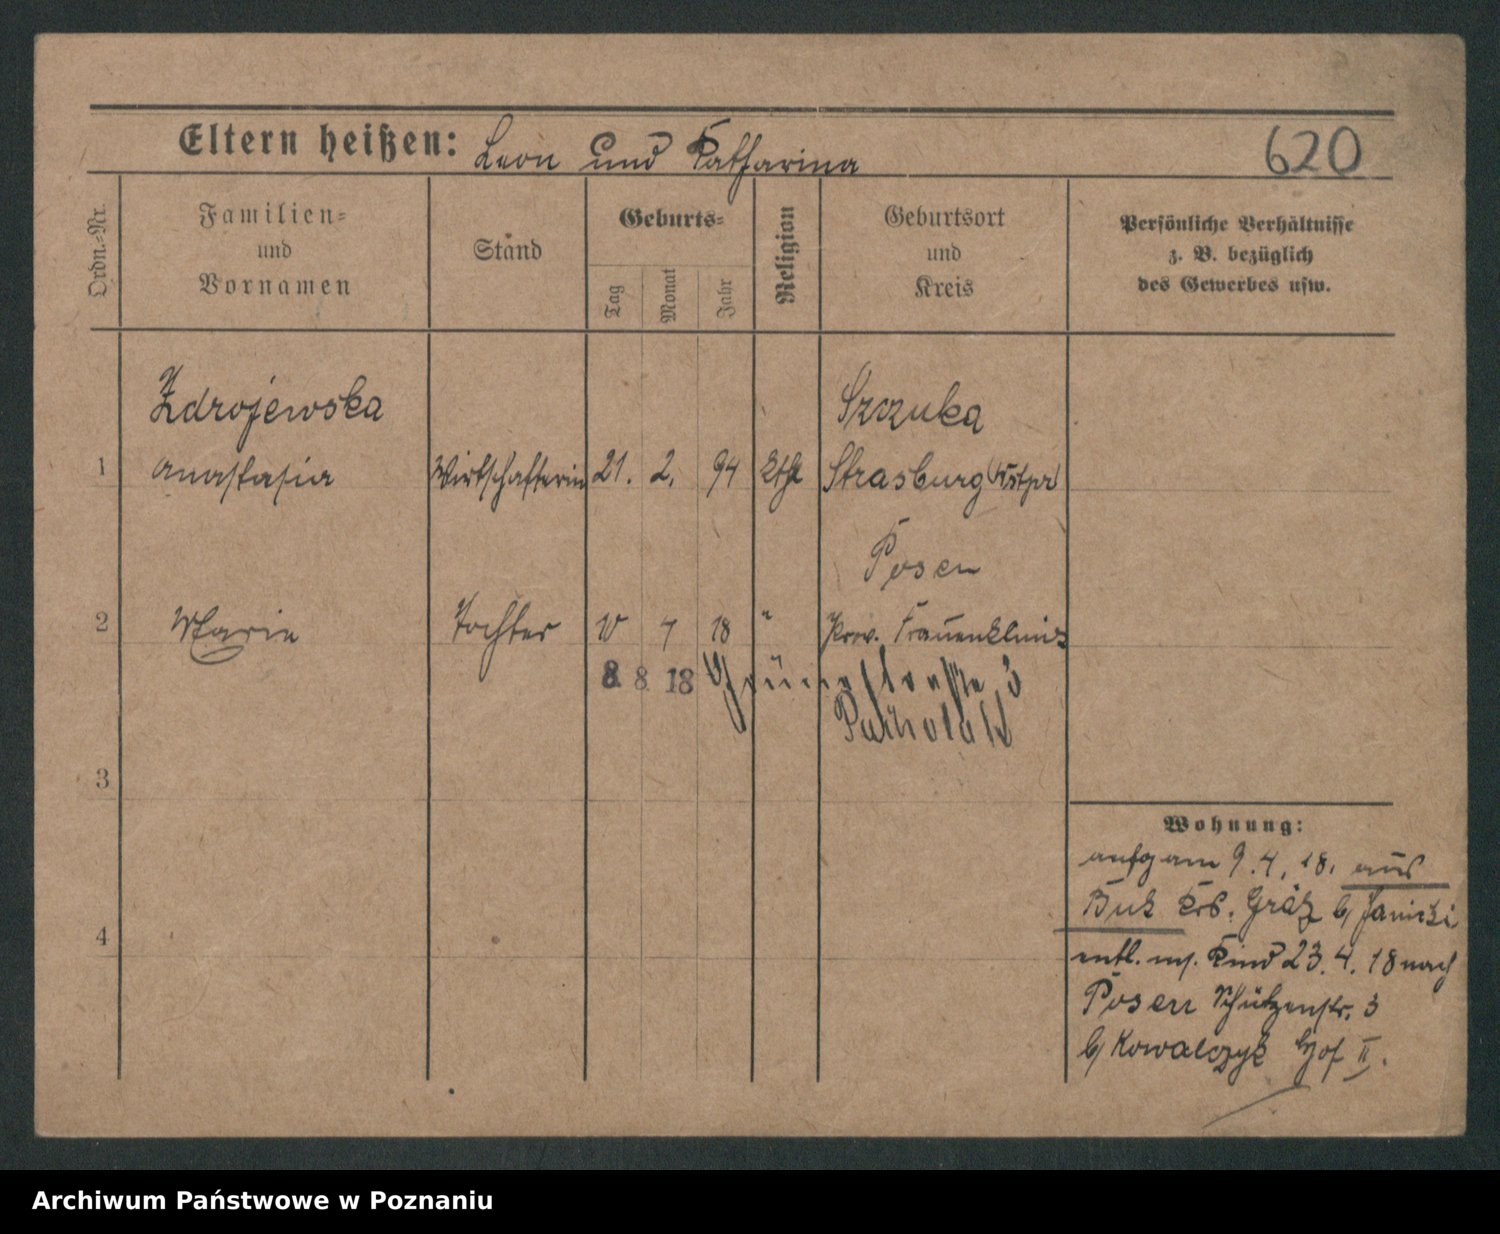 Eltern heißen: Leon und Katharina 620
Ordn.-Nr.
Familien-
und
Vornamen
Stand
Geburts-
Tag
Monat
Jahr
Religion
Geburtsort
und
Kreis
Persönliche Verhältnisse
z. B. bezüglich
des Gewerbes usw.
Zdrojewska Szczuka
1 Anastasia Wirtschafterin 21. 2. 94 kth Strasburg Wstpr
Posen
2 Marie Tochter 10 4 18 " Prov. Frauenklinik
8. 8. 18 Grünestraße 3
3
4
Wohnung:
aufg am 9. 4. 18. aus
Buk Krs. Grätz b/ Janicki
entl. m/. Kind 23. 4. 18 nach
Posen Schützenstr. 3
b/ Kowalczyk Hof II.
Archiwum Państwowe w Poznaniu